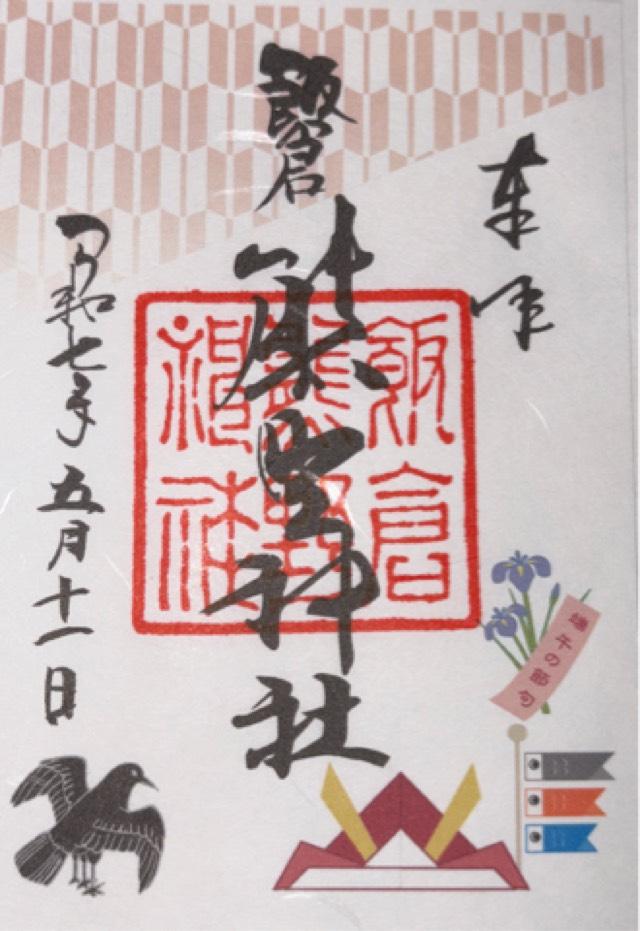 奉拝
飯倉
熊野神社
飯倉
熊野
神社
令和七年五月十一日
端午の節句